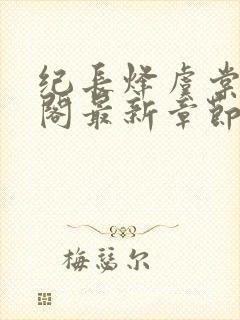 纪长烽虞棠
阁最新章节
梅瑟尔